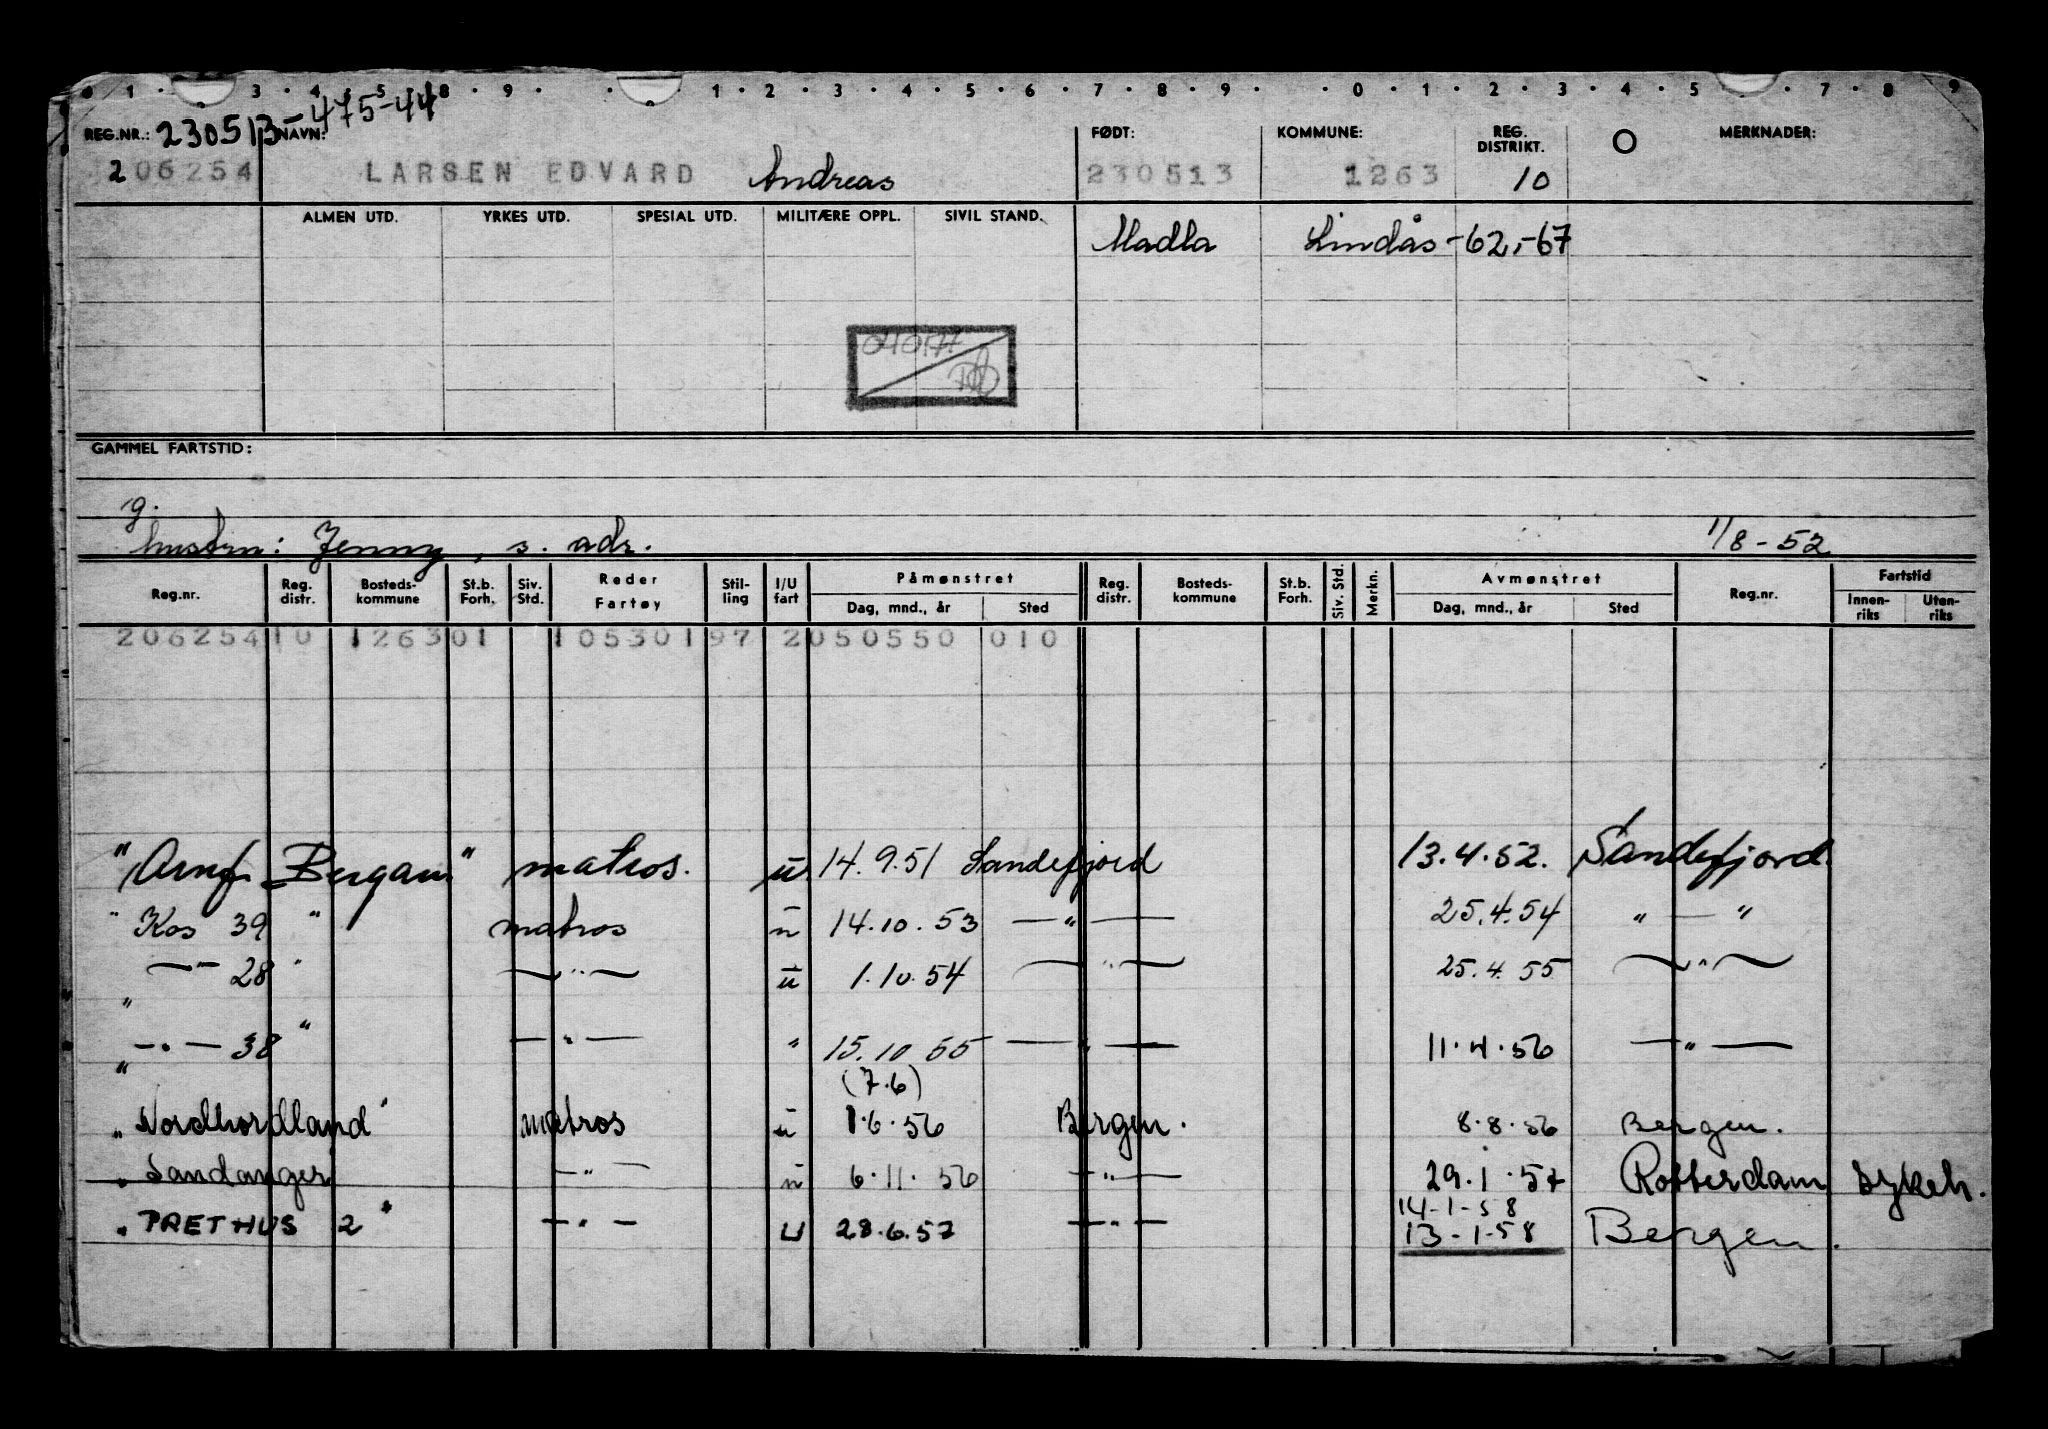 1 · 3 · 4 · 5 8 · 9 · · 1 · 2 · 3 · 4 · 5 · 7 · 8 · 9 · · 0 · 1 · 2 · 3 · 4 · 5 · 7 · 8 9
REG.NR.: 230513-475-44 NAVN: FØDT: KOMMUNE: REG. DISTRIKT. O MERKNADER:
206254 LARSEN EDVARD Andreas 230513 1263 10
ALMEN UTD. YRKES UTD. SPESIAL UTD. MILITÆRE OPPL. SIVIL STAND. Madla Lindås -62,-67
GAMMEL FARTSTID:
g.
hustru: Jenny, s. adr. 1/8-52
Reg.nr. Reg. distr. Bosteds-kommune St.b. Forh. Siv. Std. Reder Fartøy Stil-ling I/U fart Påmønstret Dag, mnd., år Sted Reg. distr. Bosteds-kommune St.b. Forh. Siv. Std. Merkn. Avmønstret Dag, mnd., år Sted Reg.nr. Fartstid Innen-riks Uten-riks
206254 10 1263 01 1053019 7 2 050550 010
"Arnf. Bergan" matros. u 14.9.51 Sandefjord 13.4.52. Sandefjord
" Kos 39 " matros u 14.10.53 — " — 25.4.54 " — "
" — " — 28 " — " — u 1.10.54 — " — 25.4.55 — " —
" — " — 38 " — " — " 15.10 55 — " — 11.4.56 — " —
(7.6)
"Nordhordland" matros u 1.6.56 Bergen. 8.8.56 Bergen.
" Sandanger — " — u 6.11.56 — " — 29.1.57 Rotterdam sykeh.
14-1-58
" PRETHUS 2 " — " — U 28.6.57 — " — 13-1-58 Bergen.